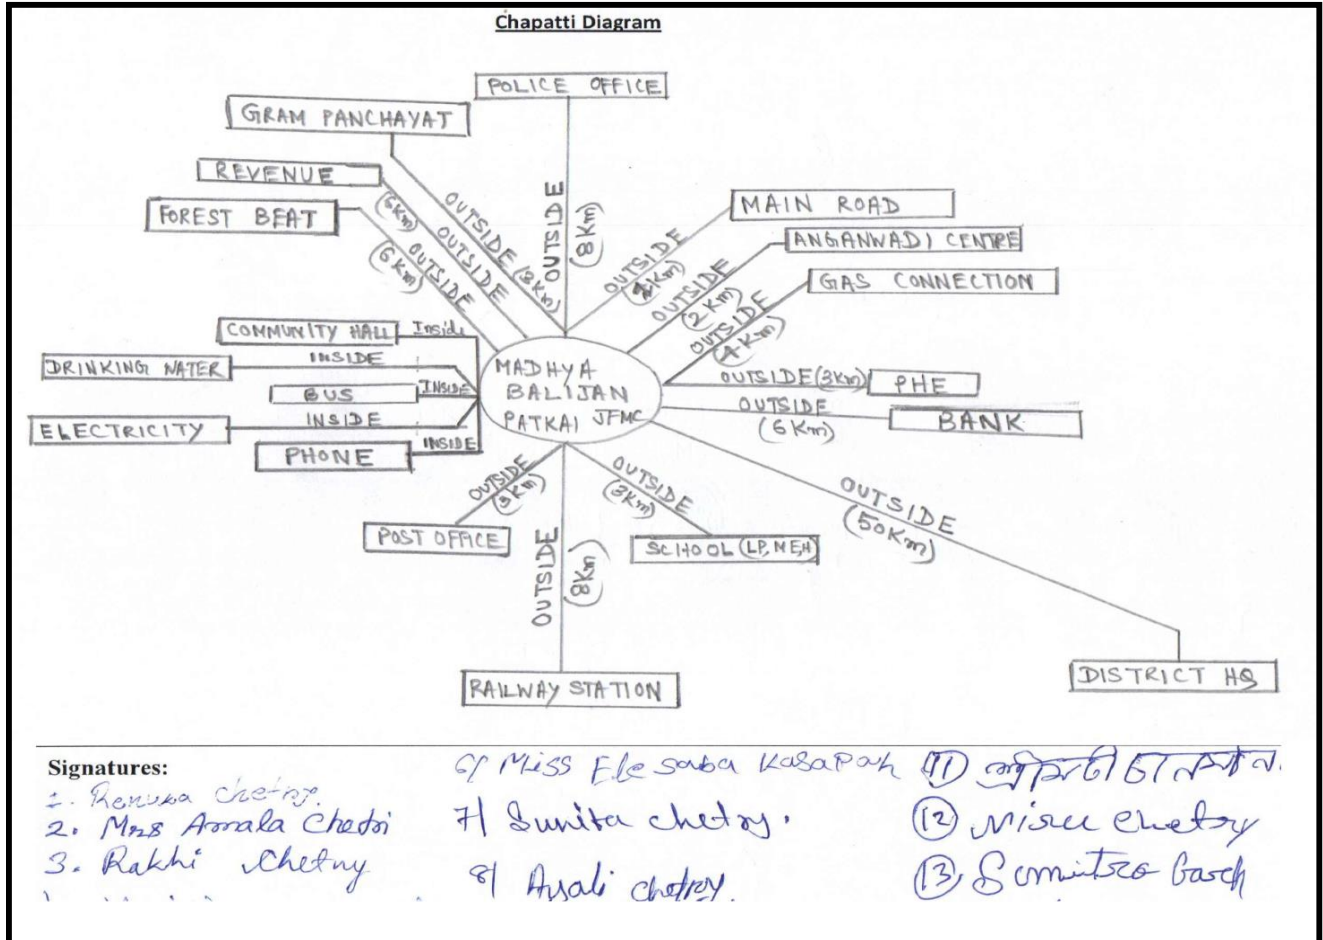 Chapatti Diagram
POLICE OFFICE
GRAM PANCHAYAT
REVENUE
FOREST BEAT
OUTSIDE (8Km)
OUTSIDE (8Km)
OUTSIDE (6Km)
OUTSIDE (6Km)
MAIN ROAD
OUTSIDE
ANGANWADI CENTRE
OUTSIDE (2Km)
GAS CONNECTION
OUTSIDE (4Km)
COMMUNITY HALL Inside
DRINKING WATER INSIDE
BUS INSIDE
ELECTRICITY INSIDE
PHONE INSIDE
MADHYA
BALIJAN
PATKAI JFMC
OUTSIDE (3Km) PHE
OUTSIDE (6Km) BANK
OUTSIDE (3Km)
POST OFFICE
OUTSIDE (8Km)
RAILWAY STATION
OUTSIDE (3Km)
SCHOOL (LP, ME, H)
OUTSIDE (50Km)
DISTRICT HQ
Signatures:
1. Renuka Chetry.
2. Mrs Amala Chetri
3. Rakhi Chetry
6/ Miss Elesaba Kasapah
7/ Sunita chetry.
8/ Anjali chetry.
11)
12 Misu chetry
13)